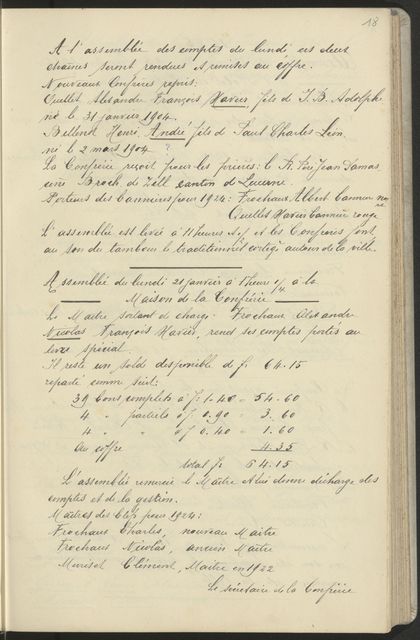 18
A l'assemblée des comptes du lundi, ces deux
chaînes seront rendues & remises au coffre.
Nouveaux Confrères reçus:
Quellet Alexandre François Xavier, fils de J. B. Adolphe
né le 31 janvier 1904.
Bellenot Henri, André fils de Paul Charles Léon,
né le 2 mars 1904 ?
La Confrérie reçoit pour les prières: le R. Père Jean Damas
cène Broch, de Zell canton de Lucerne.
Porteurs des bannières pour 1924: Frochaux Albert bannière noire
Quellet Xavier bannière rouge
L'assemblée est levée à 11 heures et les Confrères font
au son du tambour le traditionnel cortège autour de la ville.
Assemblée du lundi 21 janvier à 1 heure 1/4 à la
Maison de la Confrérie
Le Maître sortant de charge Frochaux Alexandre
Nicolas François Xavier, rend ses comptes portés au
livre spécial.
Il reste un solde disponible de f. 64.15
réparti comme suit:
39 bons complets à f. 1.40 = 54.60
4 " partiels à f. 0.90 = 3.60
4 " " à f 0.40 = 1.60
Au coffre 4.35
total f. 64.15
L'assemblée remercie le Maître & lui donne décharge des
comptes et de la gestion.
Maîtres des Clefs pour 1924:
Frochaux Charles, nouveau Maître
Frochaux Nicolas, ancien Maître
Muriset Clément, Maître en 1922
Le secrétaire de la Confrérie